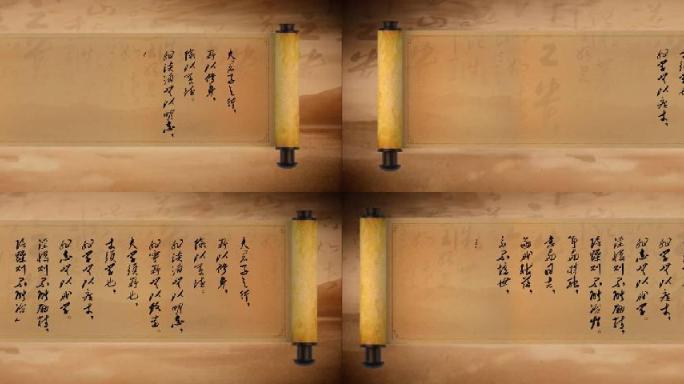 夫君子之行,
静以修身,
俭以养德。
非淡泊无以明志,
非学无以广才,
夫君子之行,
静以修身,
俭以养德。
非淡泊无以明志,
非宁静无以致远。
夫学须静也,
才须学也,
非学无以广才,
非志无以成学。
淫慢则不能励精,
险躁则不能冶
非学无以广才,
非志无以成学。
淫慢则不能励精,
险躁则不能冶性。
年与时驰,
意与日去,
遂成枯落,
多不接世,